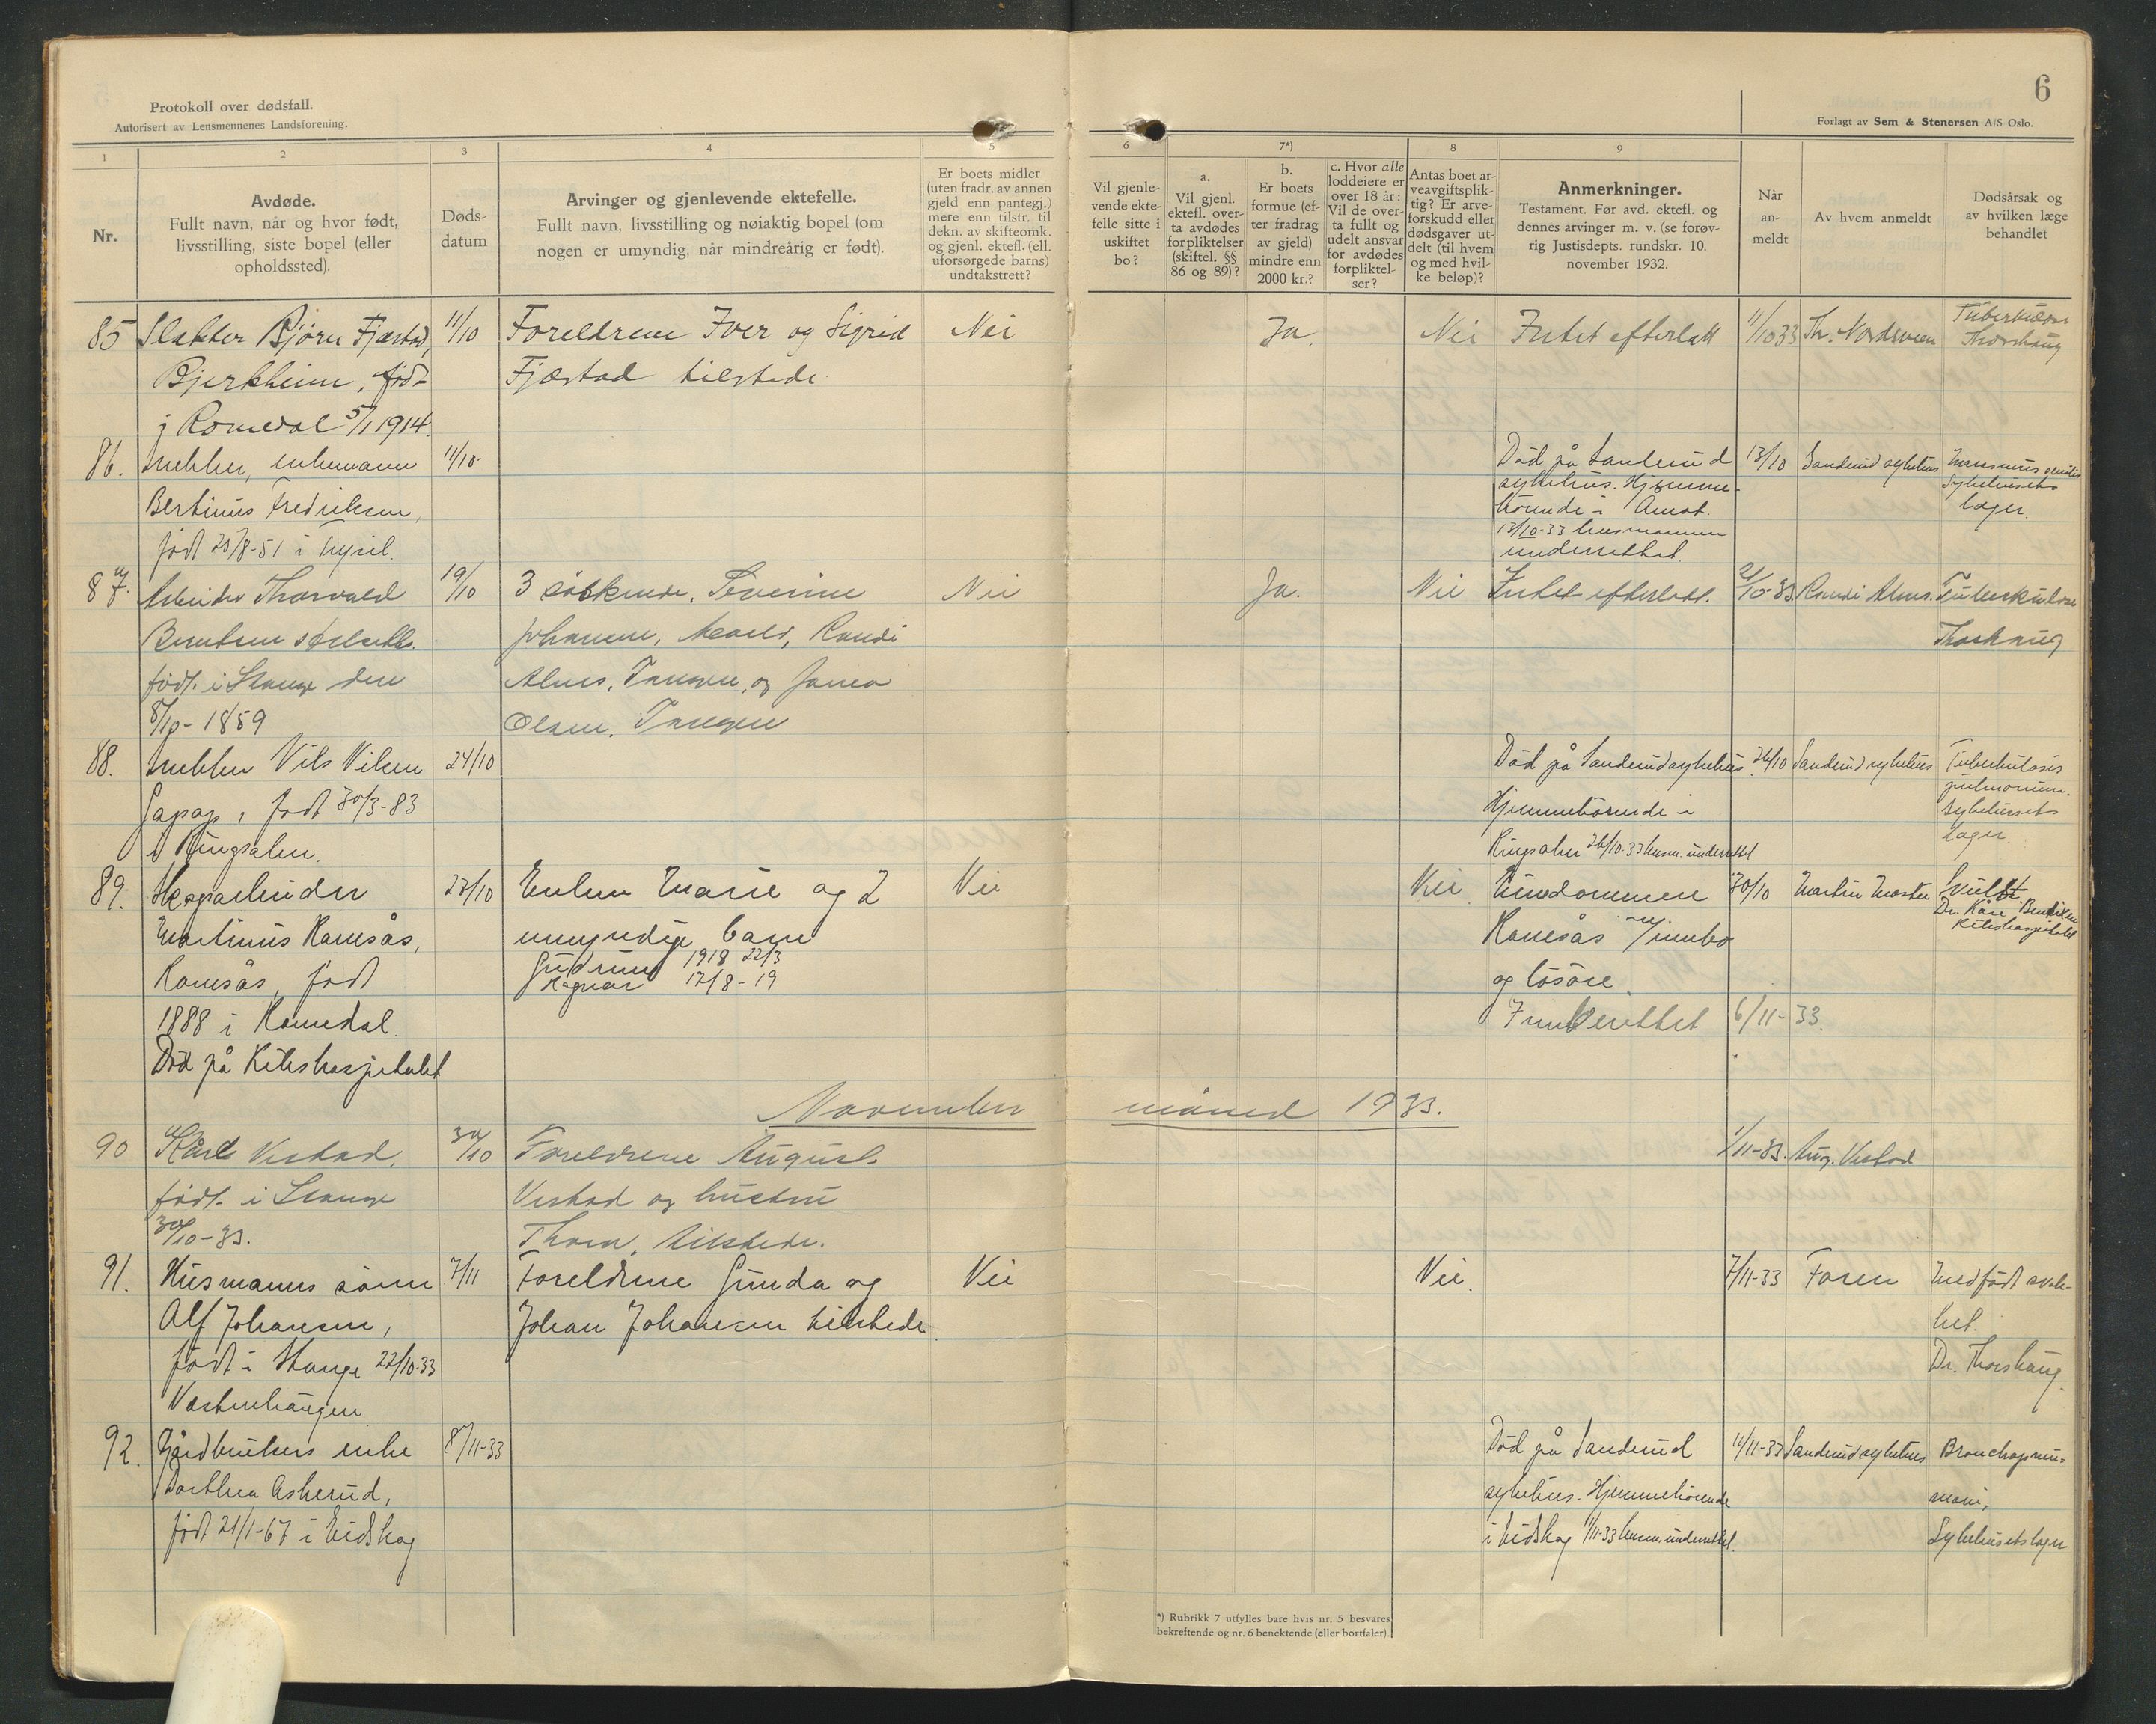 6
Protokoll over dødsfall.
Autorisert av Lensmennenes Landsforening.
Forlagt av Sem & Stenersen A/S Oslo.
1 2 3 4 5 6 7*) 8 9
Nr.
Avdøde.
Fullt navn, når og hvor født,
livsstilling, siste bopel (eller
opholdssted).
Døds-
datum
Arvinger og gjenlevende ektefelle.
Fullt navn, livsstilling og nøiaktig bopel (om
nogen er umyndig, når mindreårig er født).
Er boets midler
(uten fradr. av annen
gjeld enn pantegj.)
mere enn tilstr. til
dekn. av skifteomk.
og gjenl. ektefl. (ell.
uforsørgede barns)
undtakstrett?
Vil gjenle-
vende ekte-
felle sitte i
uskiftet
bo?
a.
Vil gjenl.
ektefl. over-
ta avdødes
forpliktelser
(skiftel. §§
86 og 89)?
b.
Er boets
formue (ef-
ter fradrag
av gjeld)
mindre enn
2000 kr.?
c. Hvor alle
loddeiere er
over 18 år:
Vil de over-
ta fullt og
udelt ansvar
for avdødes
forpliktel-
ser?
Antas boet ar-
veavgiftsplik-
tig? Er arve-
forskudd eller
dødsgaver ut-
delt (til hvem
og med hvil-
ke beløp)?
Anmerkninger.
Testament. Før avd. ektefl. og
dennes arvinger m. v. (se forøv-
rig Justisdepts. rundskr. 10.
november 1932.
Når
an-
meldt
Av hvem anmeldt
Dødsårsak og
av hvilken læge
behandlet
85 Slakter Bjørn Fjæstad, 11/10 Foreldrene Iver og Sigrid Nei Ja. Nei Intet efterlatt 11/10 33 Th. Nordsveen Tuberkulose
Bjerkheim, født Fjæstad tilstede Thorshaug
i Romedal 5/1 1914.
86. enkemann 11/10 Død på Sanderud 13/10 Sanderud sykehus Marasmus senilis
Bertinus Fredriksen, sykehus. Hjemme- Sykehusets
født 23/8-51 i Trysil. hørende i Åmot. læger.
13/10-33 lensmannen
underrettet.
87. Arbeider Thorvald 19/10 3 søskende, Severine Nei Ja. Nei Intet efterlatt. 21/10-33. Randi Alnes. Tuberkulose
Berntsen Johanne, Randi Thorshaug
født i Stange den Alnes, Tangen, og
8/10-1859 Olsen, Tangen
88. Nils Nilsen 24/10 Død på Sanderud sykehus. 26/10 Sanderud sykehus Tuberkulosis
født 30/3-83 Hjemmehørende i pulmonum.
i Ringsaker. Ringsaker 26/10-33 lensm. underrettet. Sykehusets
læger.
89. Skogarbeider 23/10 Enken Marie og 2 Nei Nei. Eiendommen 30/10 Martin
Martinus Ramsås, umyndige barn Ramsås m/innbo Dr. Kåre
Ramsås, født Gudrun 1918 22/3 og løsøre. Rikshospitalet
1888 i Romedal. Ragnar 17/8-19 Innberettet 6/11-33.
Død på Rikshospitalet
November måned 1933.
90 Kåre Vestad, 30/10 Foreldrene August 1/11-33. Aug. Vestad
født i Stange Vestad og hustru
30/10-33. Thora, tilstede.
91. Husmanns sønn 7/11 Foreldrene Gunda og Nei Nei. 7/11-33 Faren Medfødt svak-
Alf Johansen, Johan Johansen tilstede. het.
født i Stange 22/10-33 Dr. Thorshaug.
92. Gårdbrukers enke 8/11-33 Død på Sanderud 11/11-33 Sanderud sykehus Bronchopneu-
Dorthea Askerud, sykehus. Hjemmehørende moni,
født 21/1-67 i Eidskog i Eidskog 11/11-33 lensm. underrettet. Sykehusets læger
*) Rubrikk 7 utfylles bare hvis nr. 5 besvares
bekreftende og nr. 6 benektende (eller bortfaler).